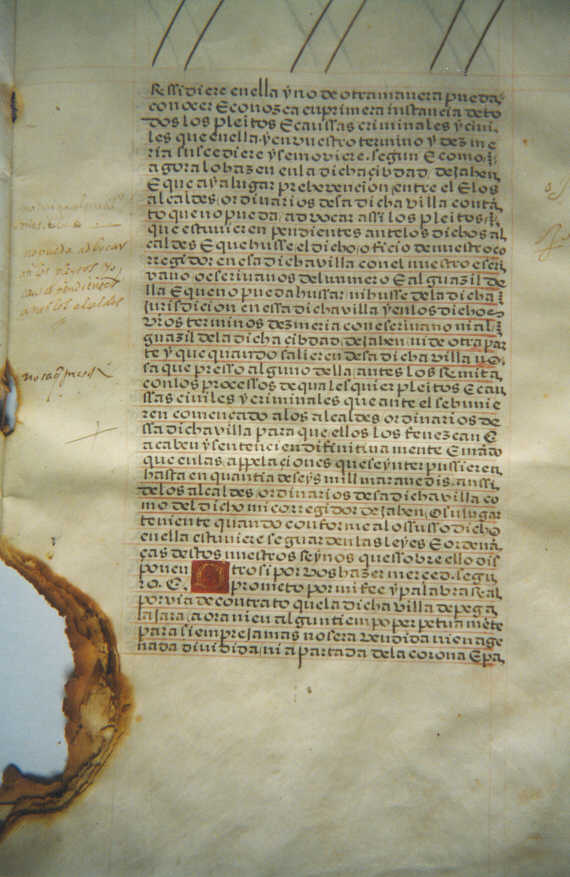 Ressidiere en ella y no de otra manera pueda
conocer E conozca en primera instancia de to
dos los pleitos E caussas criminales y civi
les que en ella y en vuestro termino y dezme
ria suscediere y se moviere. segun E como
agora lo hazen en la dicha cibdad de Jahen
E que aya lugar prebencion entre el E los
alcaldes ordinarios desa dicha villa contā
to que no pueda advocar assi los pleitos
que estuvieren pendientes ante los dichos al
caldes E que husse el dicho oficio de nuestro co
rregidor en esa dicha villa con el nuestro escri
vano o escrivanos del numero E alguazil de
lla E que no pueda hussar ni husse de la dicha
jurisdicion en essa dicha villa y en los dichos
vros terminos dezmeria con escrivano ni al
guazil de la dicha cibdad de Jahen ni de otra par
te y que quando saliere desa dicha villa no
saque presso alguno della antes los Remita
con los processos de quales quier pleitos E cau
ssas civiles y criminales que ante el se buuie
ren començado a los alcaldes ordinarios de
ssa dicha villa para que ellos los fenezcan E
acaben y sentencien difinitivamente E mādo
que en las appelaçiones que se ynterpussieren
hasta en quantia de seys mill maravedis. anssi
de los alcaldes ordinarios desa dicha villa co
mo del dicho mi corregidor de Jahen o su lugar
teniente quando conforme a lo ssusso dicho
en ella estuviere se guarden las leyes E ordenā
ças destos nuestros Reynos que ssobre ello dis
ponen Otro si por vos hazer merced. segu
ro. E. prometo por mi fee y palabra Real
por via de contrato que la dicha villa de pega
lajara, aora ni en algun tiempo perpetuamēte
para siempre jamas no sera vendida ni enage
nada dividida, ni apartada de la corona E pa
no pueda adbocar